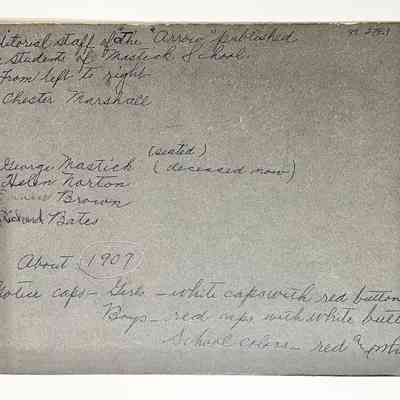 ditorial staff of "the "Arrow" published
students of Mastick School.
From left to right
Chester Marshall
(seated)
George Mastick (deceased now)
Helen Norton
Brown
Richard Bates
About 1907
otice caps - Girls - white caps with red button
Boys - red caps with white butt
School colors - red and